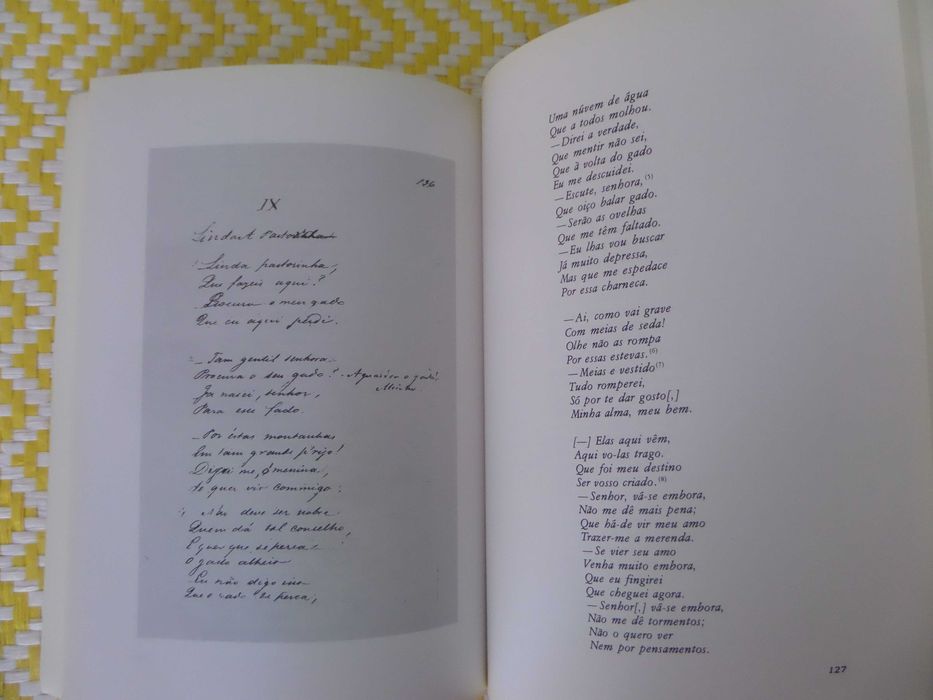 136
IX
Linda Pastorinha
Linda pastorinha,
Que fazeis aqui?
Procuro o meu gado
Que eu aqui perdi.
—Tam gentil senhora
Procura o seu gado? -A guardar o gado?
Minha
Ja nasci, senhor,
Para esse fado.
—Por éstas montanhas
Em tam grande p'rigo!
Dizei-me, ó menina,
Se quer vir commigo.
Não deve ser nobre
Quem dá tal conselho,
E quer que se perca
O gado alheio
Eu não digo isso
Que o gado se perca,
Uma núvem de água
Que a todos molhou.
—Direi a verdade,
Que mentir não sei,
Que à volta do gado
Eu me descuidei.
—Escute, senhora,(5)
Que oiço balar gado.
—Serão as ovelhas
Que me têm faltado.
—Eu lhas vou buscar
Já muito depressa,
Mas que me espedace
Por essa charneca.
—Ai, como vai grave
Com meias de seda!
Olhe não as rompa
Por essas estevas.(6)
—Meias e vestido(7)
Tudo romperei,
Só por te dar gosto[,]
Minha alma, meu bem.
[—] Elas aqui vêm,
Aqui vo-las trago.
Que foi meu destino
Ser vosso criado.(8)
—Senhor, vá-se embora,
Não me dê mais pena;
Que há-de vir meu amo
Trazer-me a merenda.
—Se vier seu amo
Venha muito embora,
Que eu fingirei
Que cheguei agora.
—Senhor[,] vá-se embora,
Não me dê tormentos;
Não o quero ver
Nem por pensamentos.
127